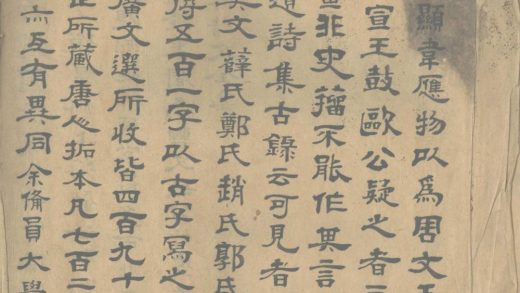 顯韋應物以為周文王
宣王鼓歐公疑之者三
非史籀不能作其言
詩集古錄云可見者
其文薛氏鄭氏趙氏郭氏
得五百一字以古字寫之
廣文選所收皆四百九十
所藏唐人拓本凡七百二
亦互有異同余備員大學